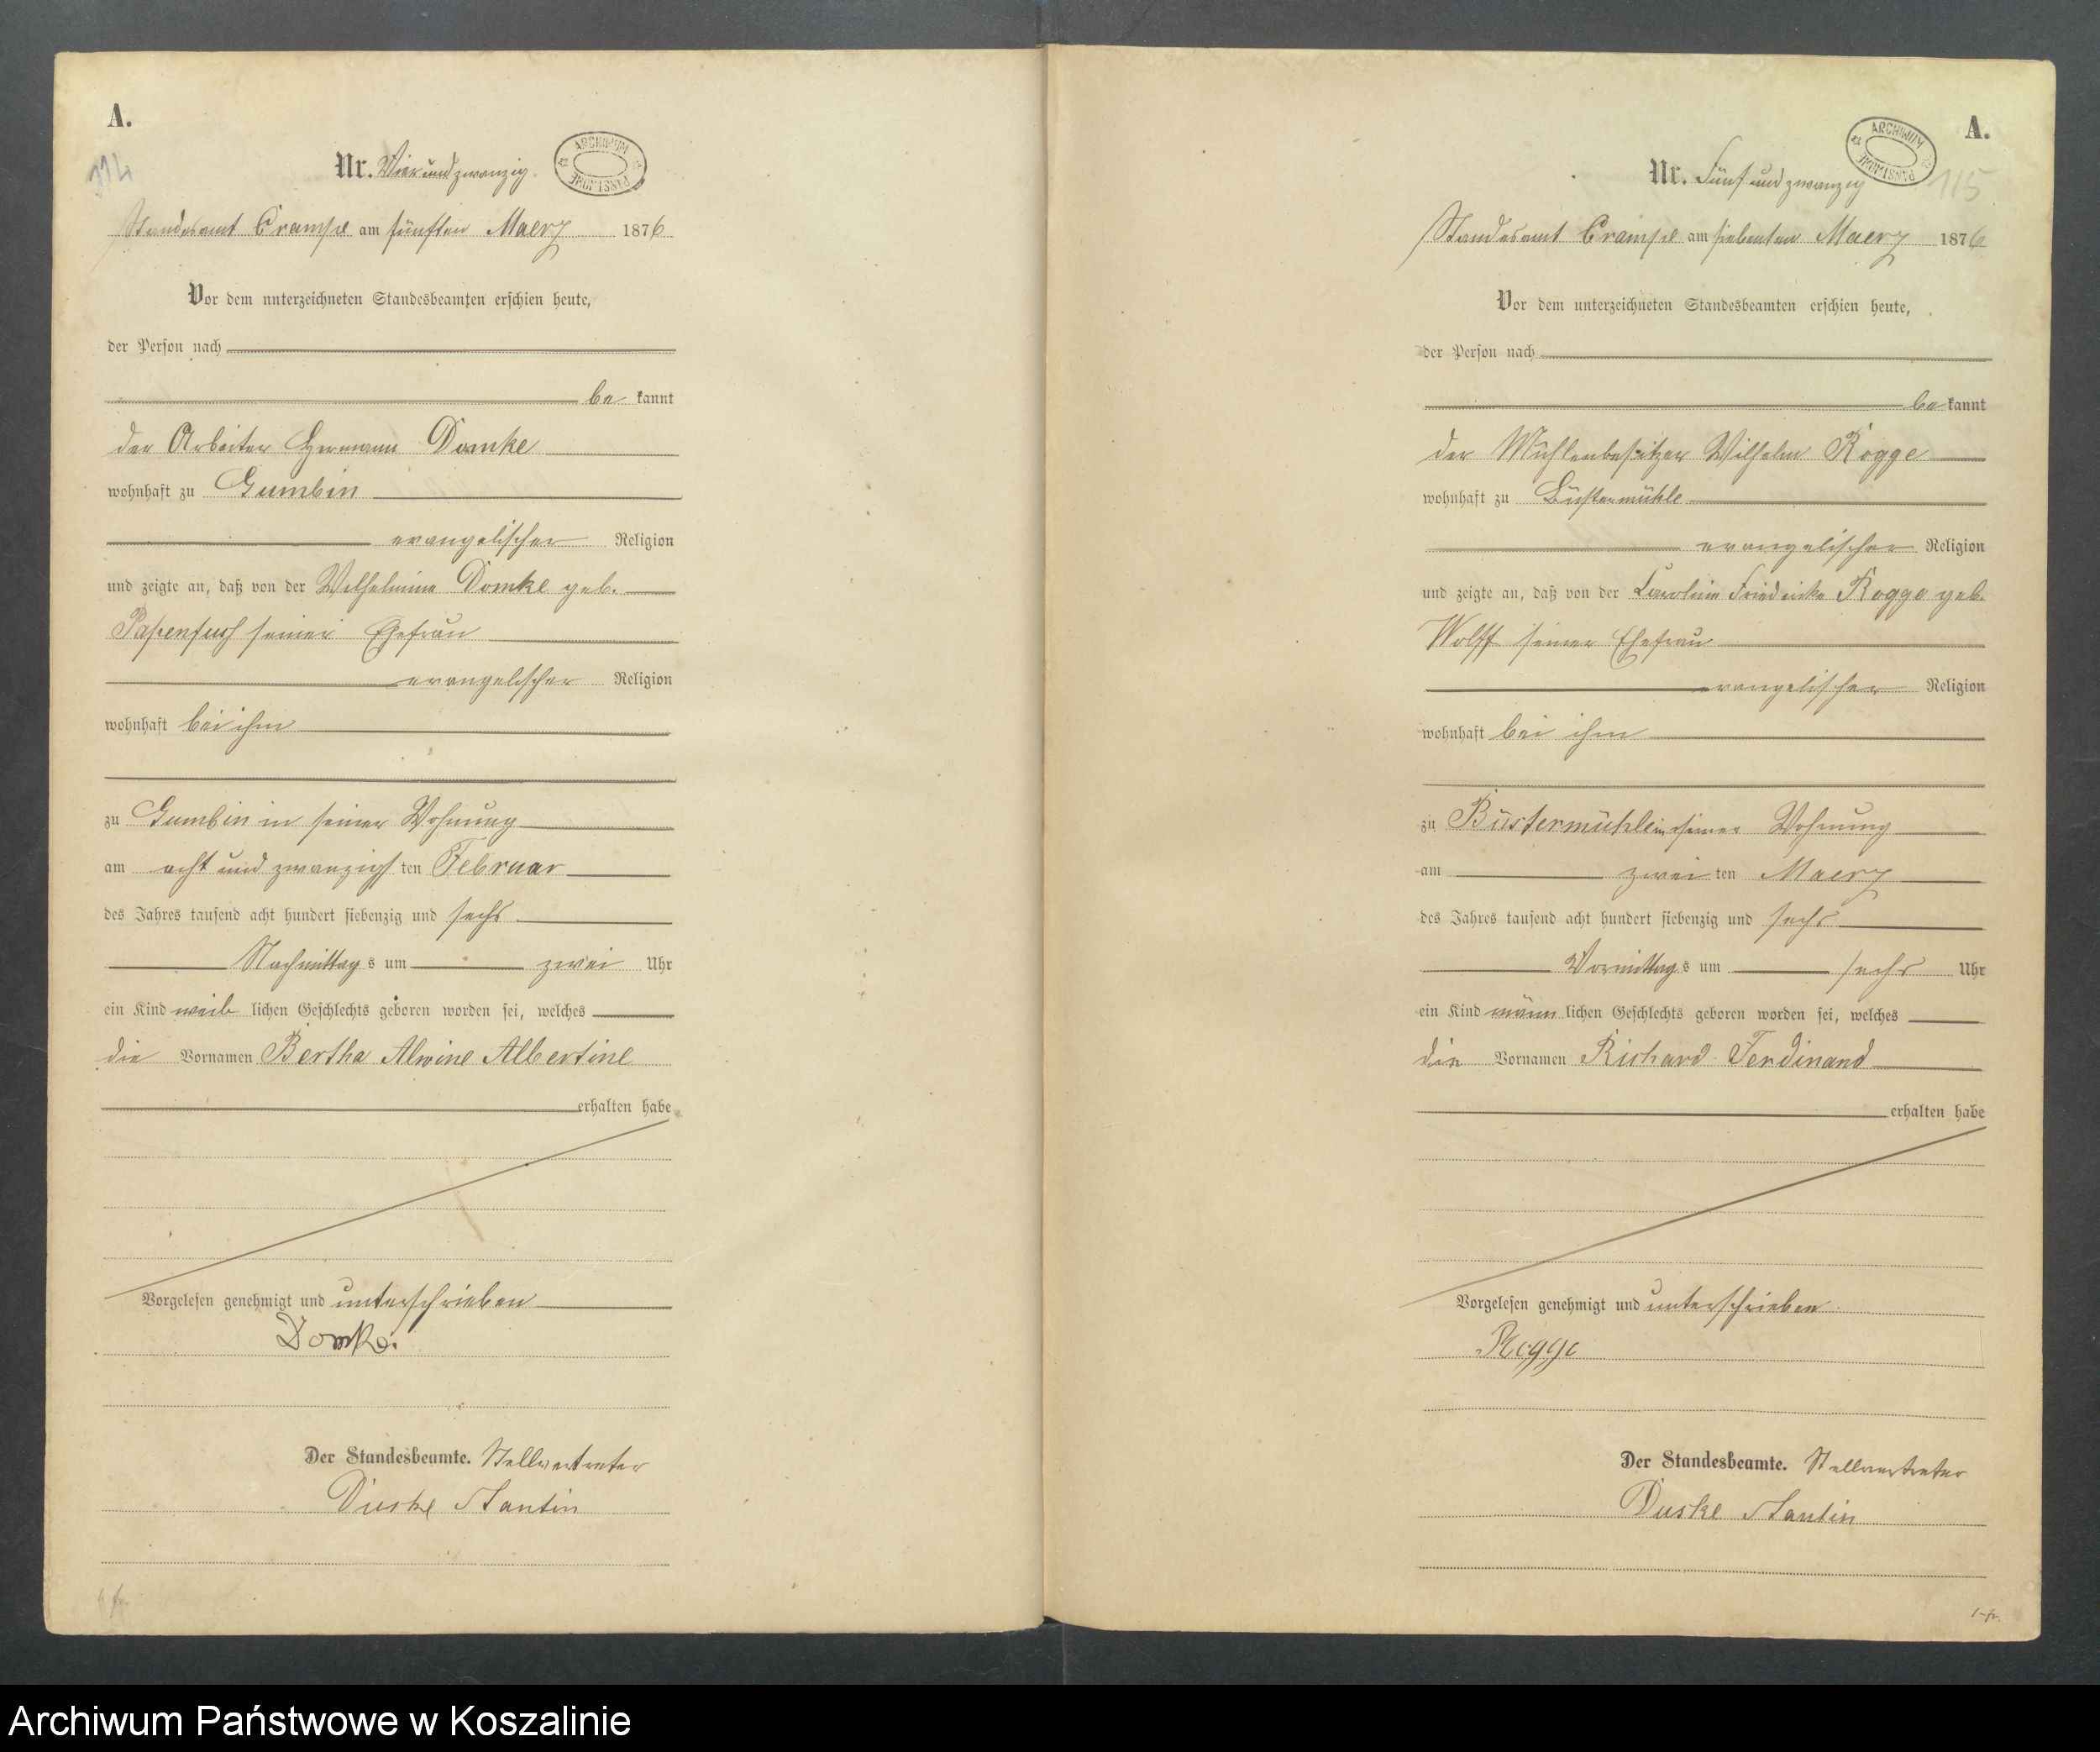 A.
114
Nr. Vier und zwanzig.
ARCHIWUM PAŃSTWOWE
Standesamt Crampe am fünften Maerz 1876
Vor dem unterzeichneten Standesbeamten erschien heute,
der Person nach
be kannt
der Arbeiter Hermann Domke
wohnhaft zu Gumbin
evangelischer Religion
und zeigte an, daß von der Wilhelmine Domke geb.
Papenfuß seiner Ehefrau
evangelischer Religion
wohnhaft bei ihm
zu Gumbin in seiner Wohnung
am acht und zwanzigsten Februar
des Jahres tausend acht hundert siebenzig und sechs
Nachmittags um zwei Uhr
ein Kind weiblichen Geschlechts geboren worden sei, welches
die Vornamen Bertha Alwine Albertine
erhalten habe
Vorgelesen genehmigt und unterschrieben
Domke.
Der Standesbeamte. Stellvertreter
Duske Stantin
A.
115
Nr. Fünf und zwanzig
ARCHIWUM PAŃSTWOWE
Standesamt Crampe am siebenten Maerz 1876
Vor dem unterzeichneten Standesbeamten erschien heute,
der Person nach
be kannt
der Mühlenbesitzer Wilhelm Rogge
wohnhaft zu Büstermühle
evangelischer Religion
und zeigte an, daß von der Caroline Friedericke Rogge geb.
Wolff seiner Ehefrau
evangelischer Religion
wohnhaft bei ihm
zu Büstermühle in seiner Wohnung
am zweiten Maerz
des Jahres tausend acht hundert siebenzig und sechs
Vormittags um sechs Uhr
ein Kind männlichen Geschlechts geboren worden sei, welches
die Vornamen Richard Ferdinand
erhalten habe
Vorgelesen genehmigt und unterschrieben
Rogge
Der Standesbeamte. Stellvertreter
Duske Stantin
Archiwum Państwowe w Koszalinie